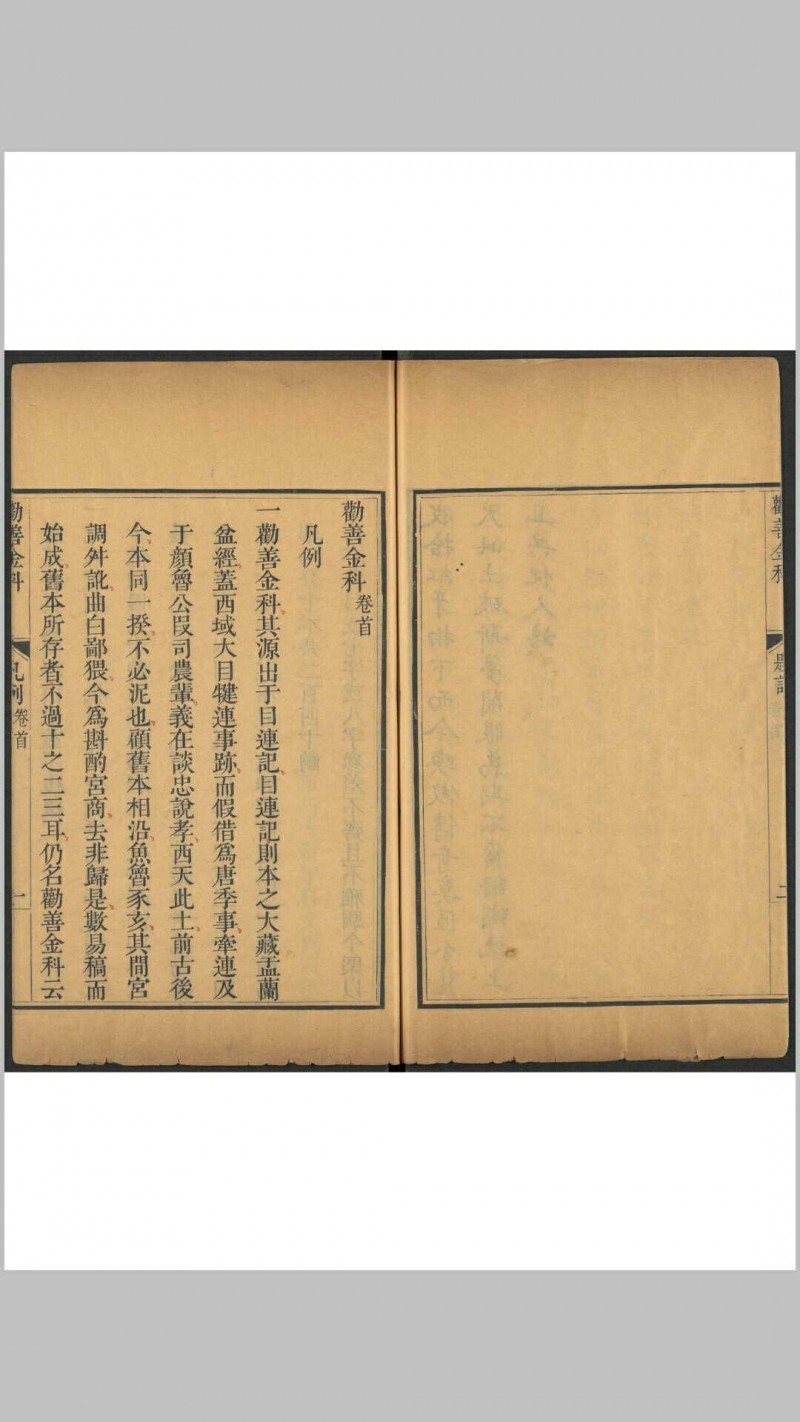 勸善金科
題詞
二
勸善金科 卷首
凡例
一勸善金科、其源出于目連記、目連記則本之大藏盂蘭
盆經、蓋西域大目犍連事跡、而假借爲唐季事、牽連及
于顏魯公段司農輩、義在談忠說孝、西天此土、前古後
今、本同一揆、不必泥也、顧舊本相沿、魚魯豕亥、其間宮
調舛訛、曲白鄙猥、今爲斟酌宮商、去非歸是、數易稿而
始成、舊本所存者、不過十之二三耳、仍名勸善金科云
勸善金科
凡例 卷首
一